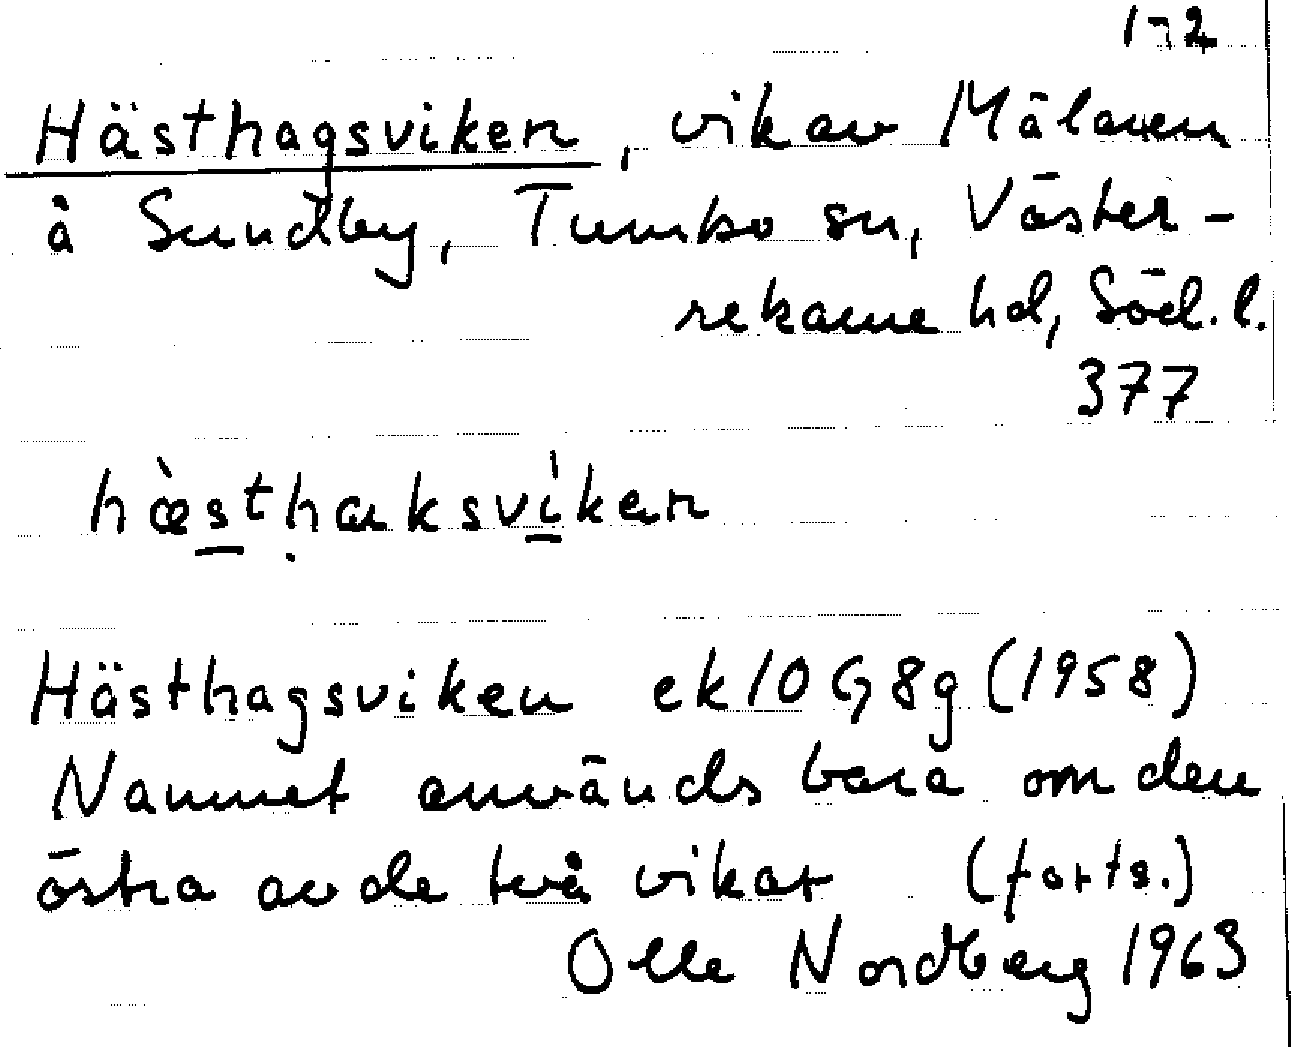 1-2
Hästhagsviken, vik av Mälaren
å Sundby, Tumbo sn, Väster-
rekarne hd, Söd. l.
377
hæ̀stha​ksvìkan
Hästhagsviken ek 10 G 8g (1958)
Namnet används bara om den
östra av de två vikar (forts.)
Olle Nordberg 1963